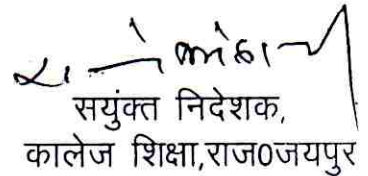 सयुंक्त निदेशक,
कालेज शिक्षा,राज0जयपुर